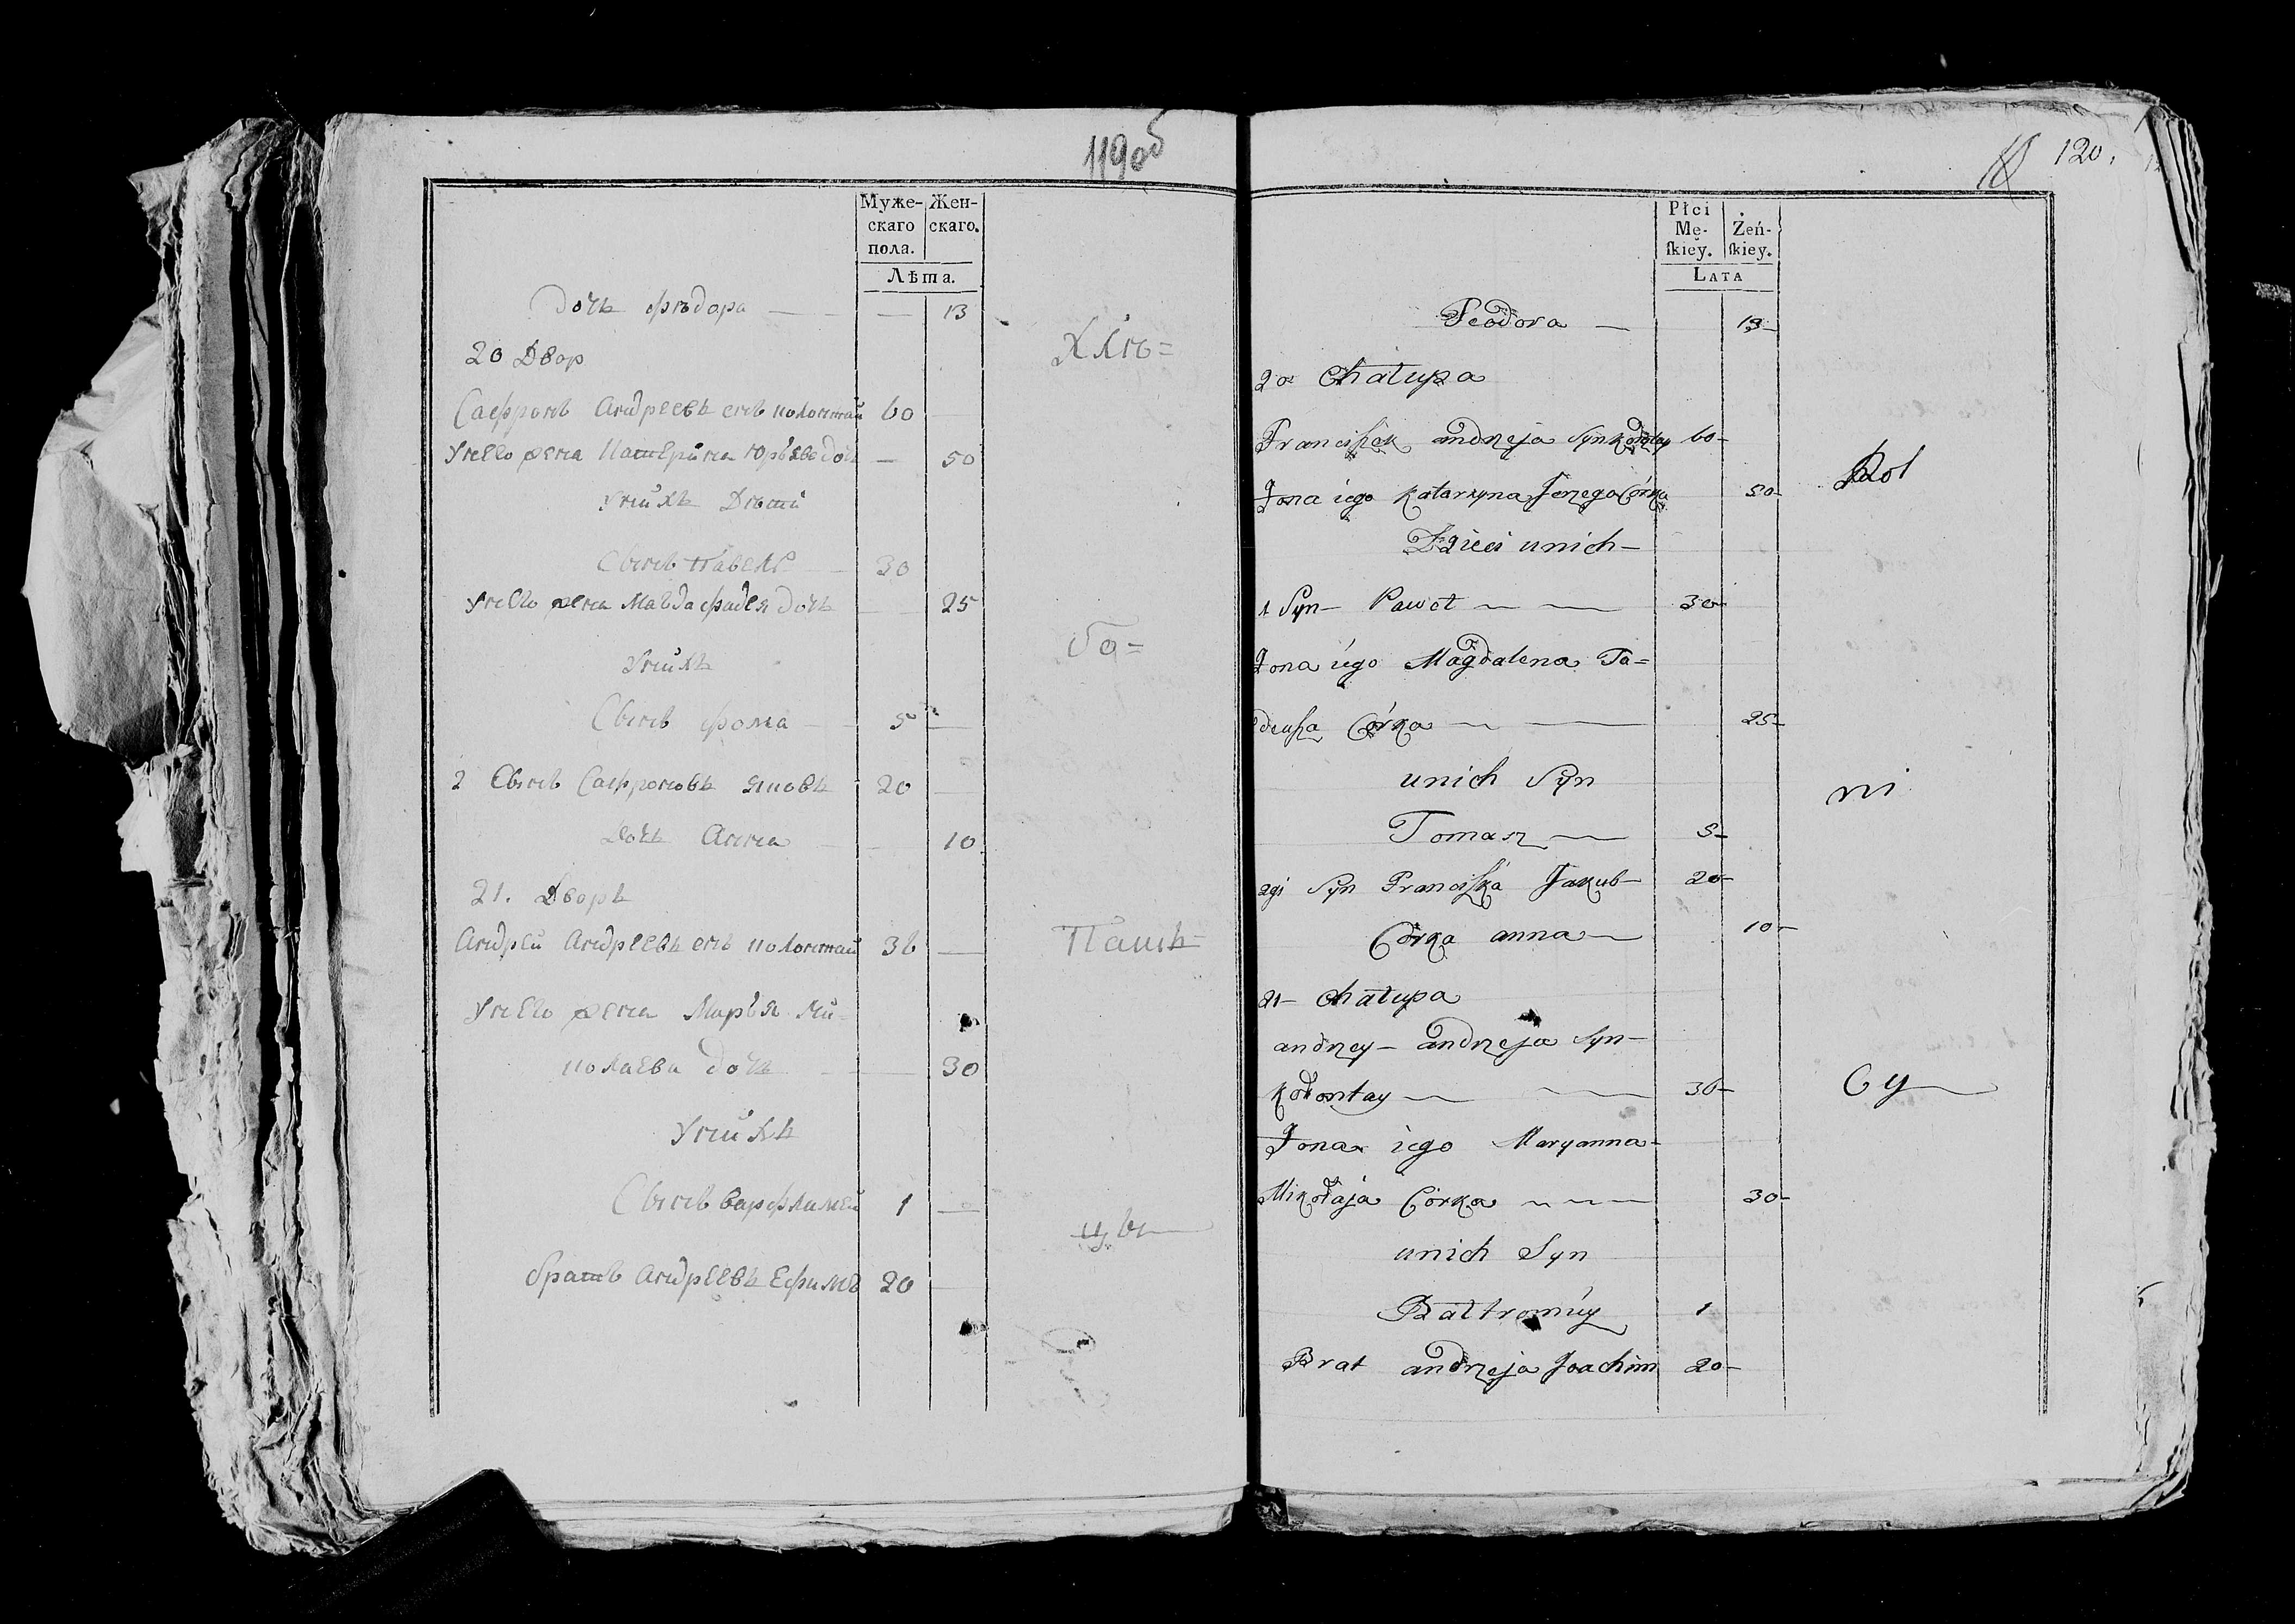 119об
Муже-
скаго
пола.
Жен-
скаго.
Лѣта.
дочь Фѣдора — — 13
Хлѣ=
20 Двор
Сафронъ Андреевъ снъ Колонтай 60
Унего жена Катерина Юрьева дочь — 50
Унихъ Дѣти
Сынъ Павелъ — 30
Унего жена Магда Фадея дочь 25
бо=
Унихъ
Сынъ Фома — 5 —
2 Сынъ Сафроновъ Яковъ 20 —
Дочь Анна — 10
21. Дворъ
Андрей Андреевъ снъ Колонтай 36 —
Пашь
Унего жена Марья Ни-
колаева дочь — 30
Унихъ
Сынъ Варфламей 1 —
цы
братъ Андреевъ Ефимъ 20 —
120.
Płci
Mę-
ſkiey.
Żeń-
ſkiey.
Lata
Teodora — 13-
20 Chałupa
Franciſzek andrzeja Syn Kołłontay 60-
Rol
Żona iego Katarzyna Jerzego Córka 50-
Dzieci unich-
1 Syn- Paweł — 30-
Żona iego Magdalena Ta=
deuſza Córka — 25-
unich Syn
ni
Tomasz — 5-
2gi Syn Franciſzka Jakub- 20-
Córka anna — 10-
21- Chałupa
andrzey- andrzeja Syn-
Kołłontay — 36-
cy
Żona iego Maryanna-
Mikołaja Córka — 30-
unich Syn
Bałtromiy 1
Brat andrzeja Joachim 20-